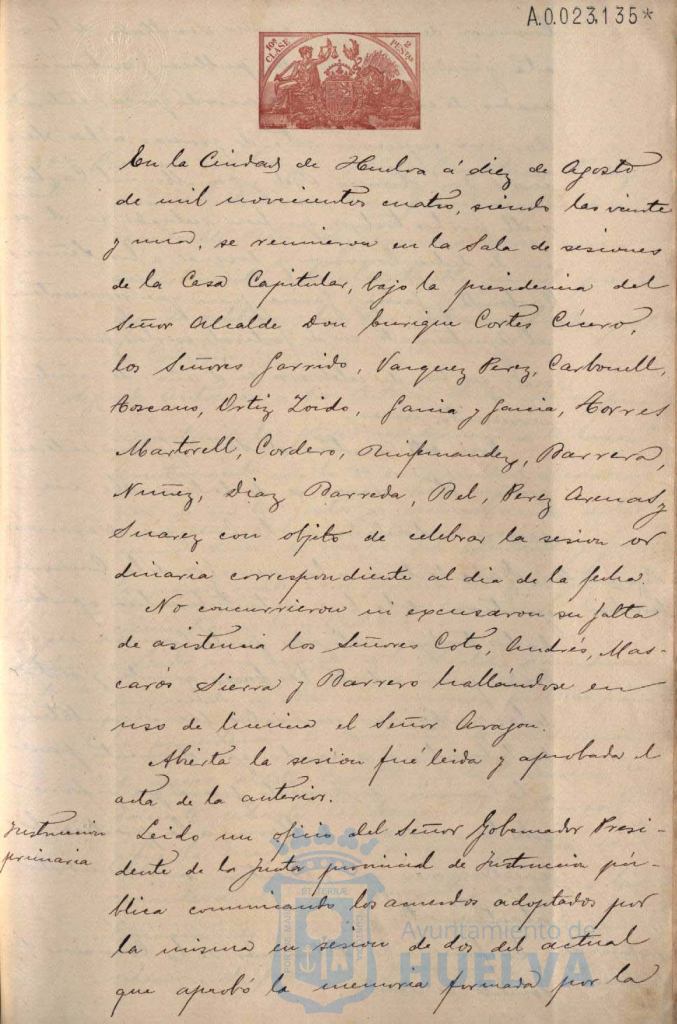 A.0.023.135*
10ª CLASE
2 PESETAS
En la Ciudad de Huelva á diez de Agosto
de mil novecientos cuatro, siendo las veinte
y una, se reunieron en la Sala de sesiones
de la Casa Capitular, bajo la presidencia del
Señor Alcalde Don Enrique Cortes Cícero,
los Señores Garrido, Vazquez Perez, Carbonell,
Toscano, Ortiz Zoido, Garcia y Garcia, Torres
Martorell, Cordero, Barrera,
Nuñez, Diaz Barreda, Bel, Perez Arenas y
Suarez con objeto de celebrar la sesion or
dinaria correspondiente al dia de la fecha.
No concurrieron ni excusaron su falta
de asistencia los Señores Coto, Andrés, Mas-
carós Sierra y Barrero hallándose en
uso de licencia el Señor Aragon.
Abierta la sesion fué leida y aprobada el
acta de la anterior.
Instruccion
primaria
Leido un oficio del Señor Gobernador Presi-
dente de la Junta provincial de Instruccion pú-
blica comunicando los acuerdos adoptados por
la misma en sesion de dos del actual
que aprobó la memoria formada por la
Ayuntamiento de
HUELVA